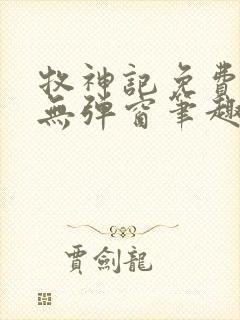 牧神記免費
無彈窗筆趣
賈劍龍